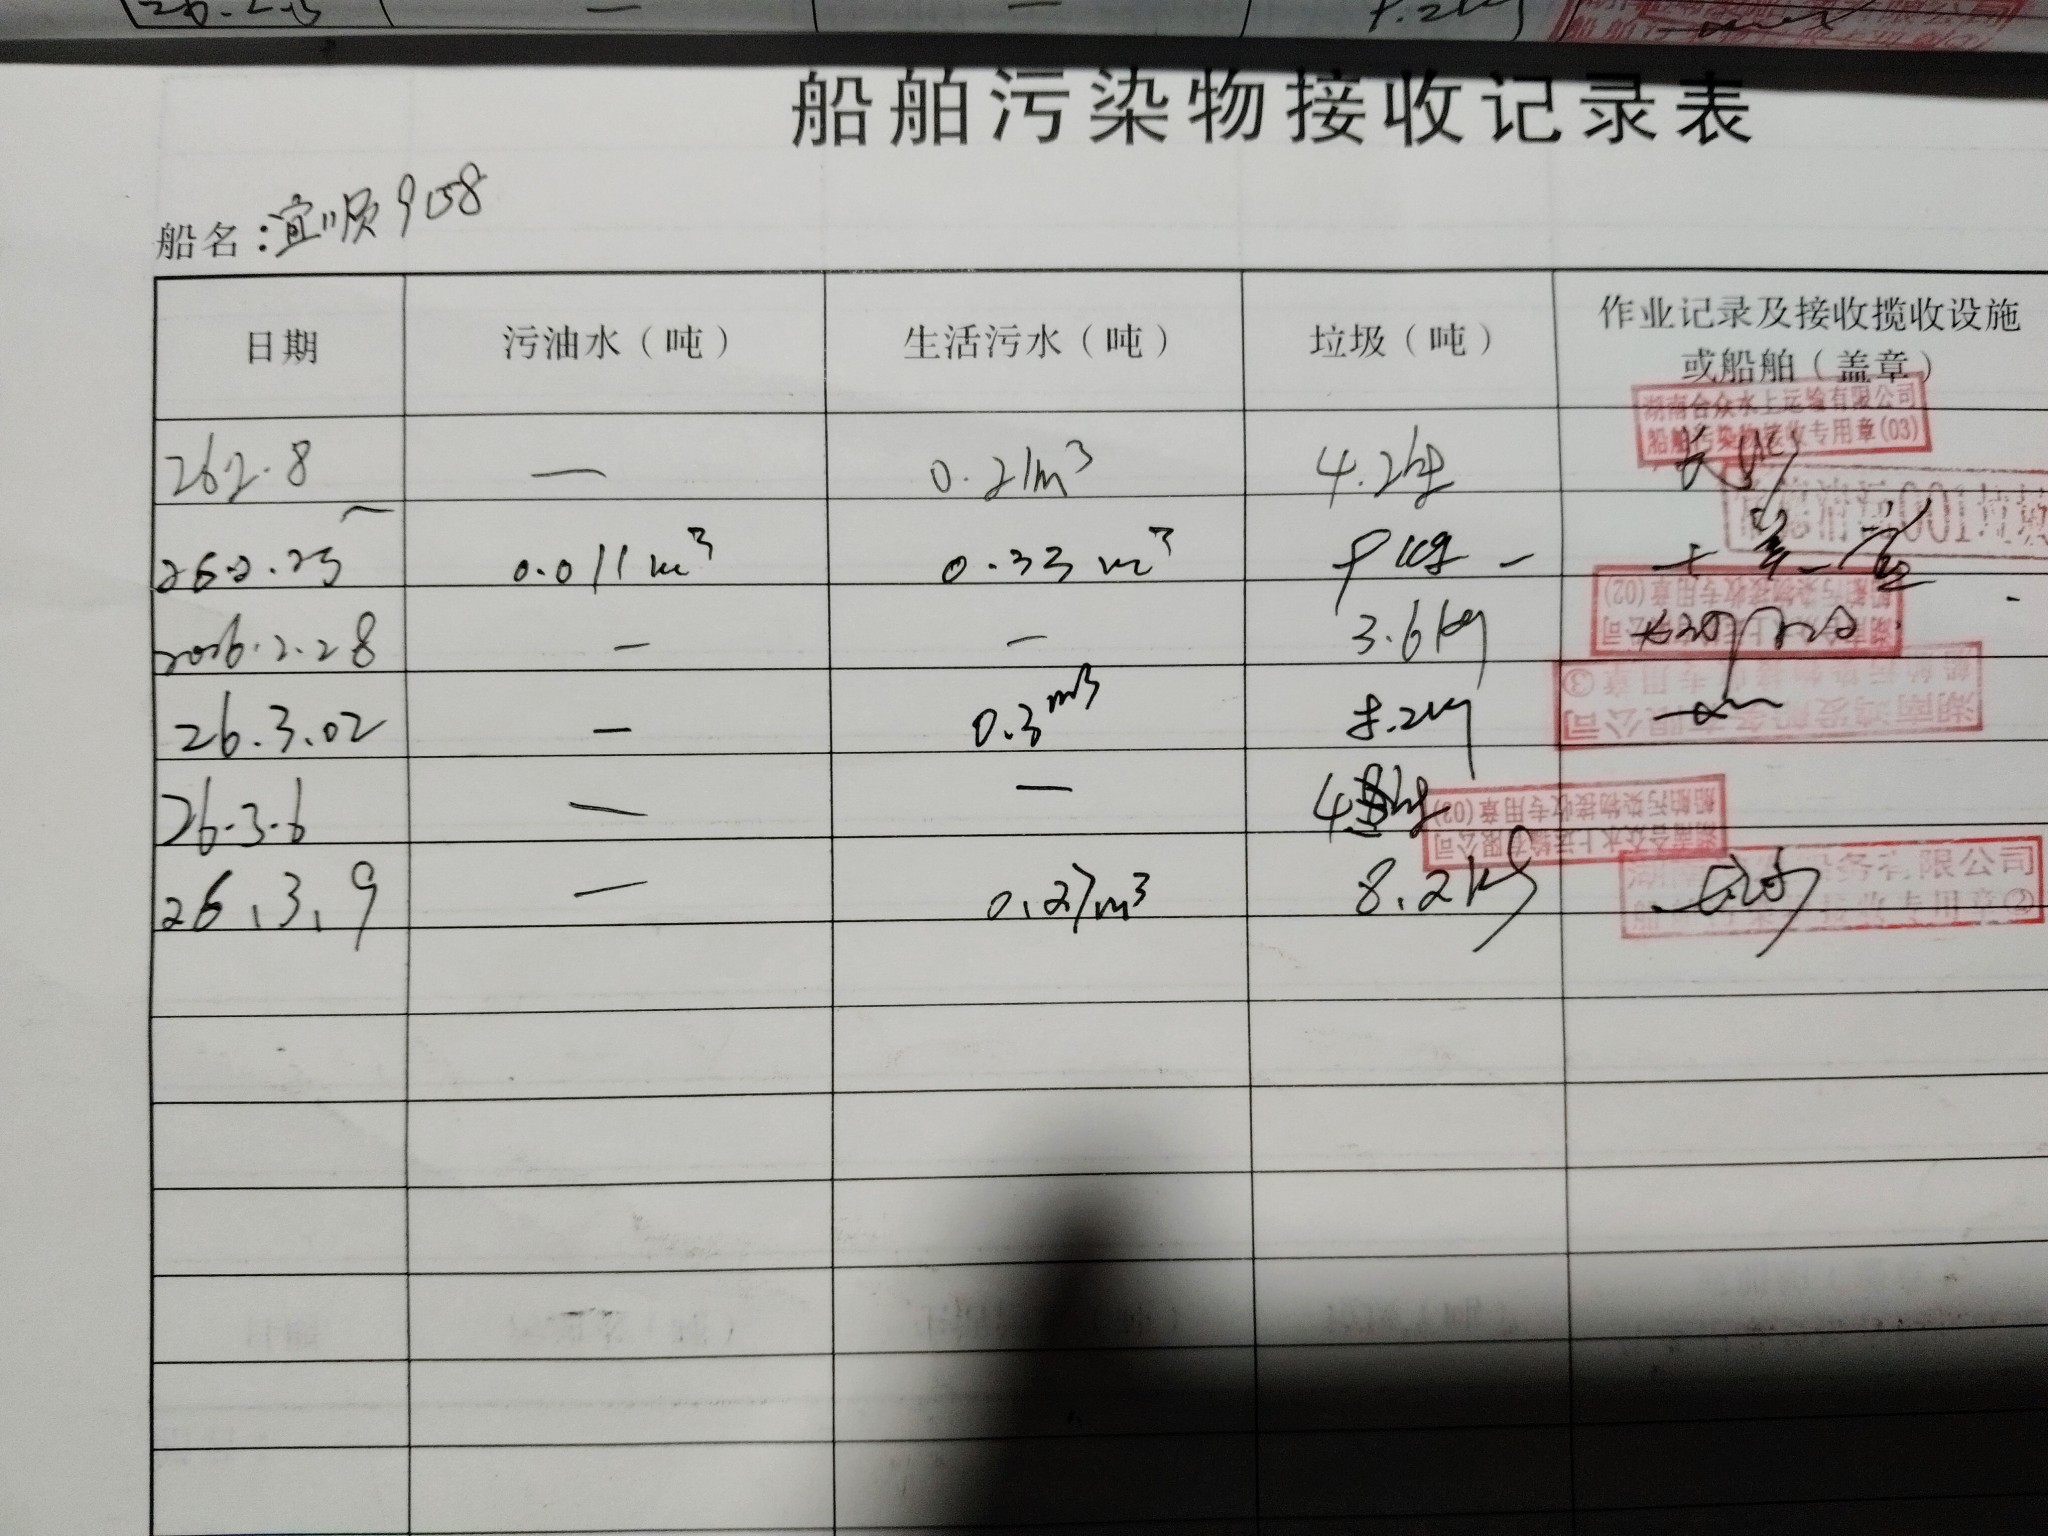 船舶污染物接收记录表
船名：宜顺908
日期 污油水（吨） 生活污水（吨） 垃圾（吨） 作业记录及接收揽收设施或船舶（盖章）
湖南合众水上运输有限公司
船舶污染物接收专用章(03)
26.2.8 — 0.21m³ 4.2kg
26.2.25 0.011m³ 0.33m³ kg
2026.2.28 — — 3.6kg
船舶污染物接收专用章(02)
26.3.02 — 0.3m³ 8.2kg
26.3.6 — — 4 kg
湖南合众水上运输有限公司
船舶污染物接收专用章(03)
26.3.9 — 0.27m³ 8.2kg
务有限公司